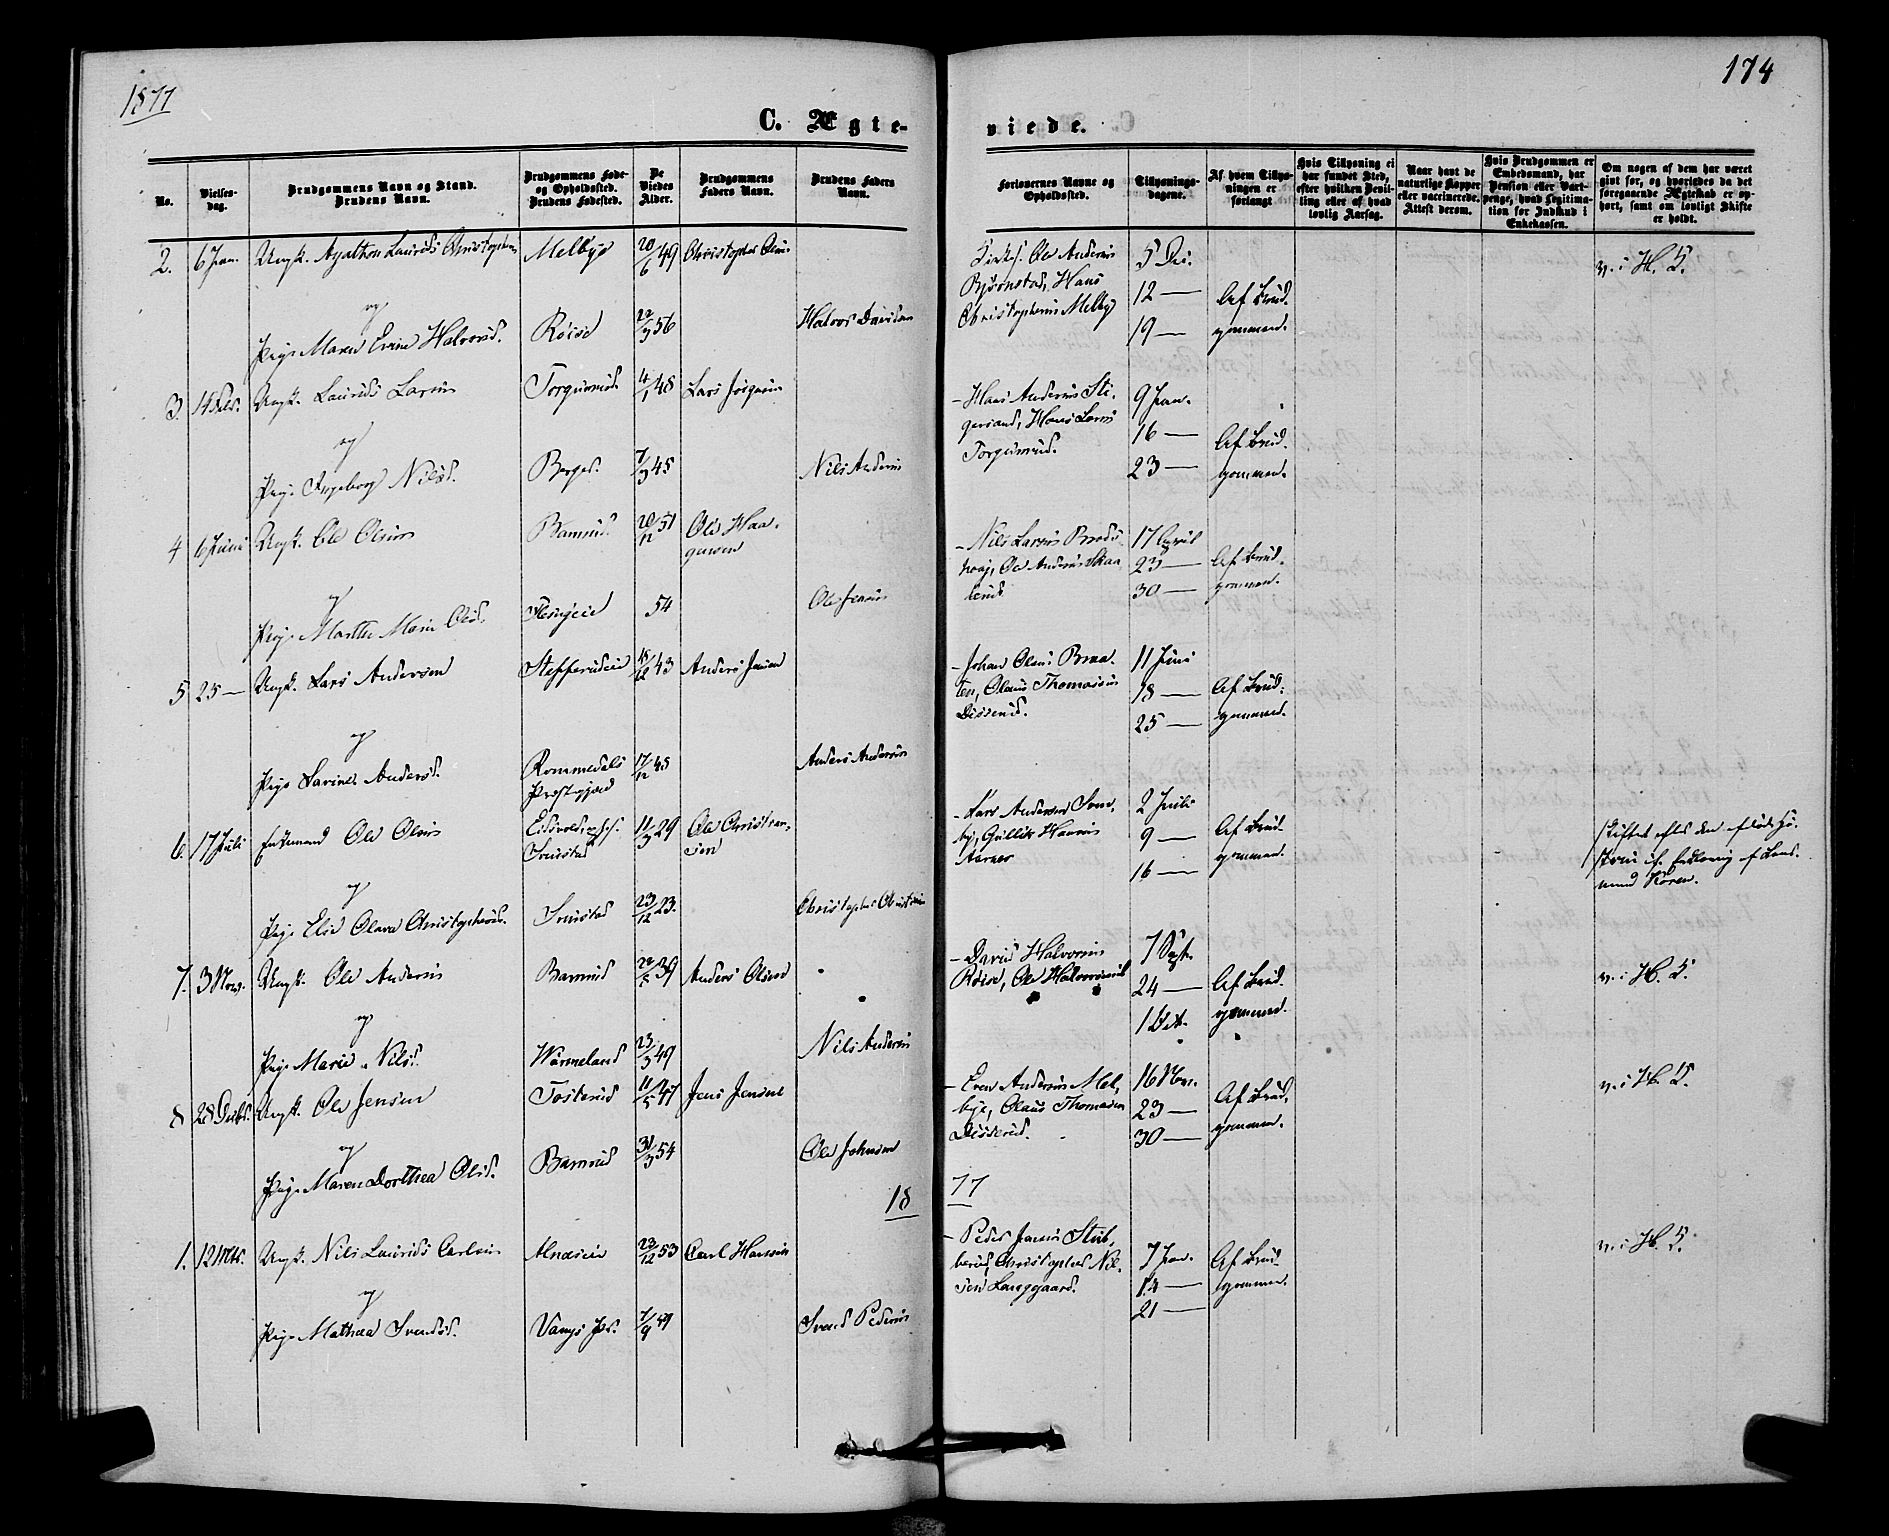 1877
174
C. Ægte-
viede.
No.
Vielses-
dag.
Brudgommens Navn og Stand.
Brudens Navn.
Brudgommens Føde-
og Opholdssted.
Brudens Fødested.
De
Viedes
Alder.
Brudgommens
Faders Navn.
Brudens Faders
Navn.
Forlovernes Navne og
Opholdssted.
Tillysnings-
dagene.
Af hvem Tillys-
ningen er
forlangt
Hvis Tillysning ei
har fundet Sted,
efter hvilken Bevil-
ling eller af hvad
lovlig Aarsag.
Naar havt de
naturlige Kopper
eller vaccinerede.
Attest derom.
Hvis Brudgommen er
Embedsmand, har
Pension eller Vart-
penge, hvad Legitima-
tion for Indskud i
Enkekassen.
Om nogen af dem har været
gift før, og hvorledes da det
foregaaende Ægteskab er op-
hørt, samt om lovligt Skifte
er holdt.
2. 6 Jan. Ungk. Agathon Laurids Christophers. Melbye 20/6 49 Christopher Olsen
Ole Andersen
Bjørnstad, Hans
Christophersen Melby
5 Dec.
12 —
19 —
Af Brud-
gommen.
v. i H. S.
og
Pige Maren Evine Halvorsd. Røise 22/3 56 Halvor Davidsen
3. 14 Febr. Ungk. Laurids Larsen Torgunrud 4/1 48 Lars Jørgensen
– Hans Andersen Sti-
gersand, Hans Larsen
Torgunrud.
9 Jan.
16 —
23 —
Af Brud-
gommen.
og
Pige Ingeborg Nilsd. Berger. 7/3 45 Nils Andersen
4 6 Juni Ungk. Ole Olsen Bamrud. 20/12 51 Ole Haa-
gensen
– Nils Larsen
Ole Andersen Skaa-
lerud
17 April
23 —
30 —
Af Brud-
gommen.
og
Pige Marthe Marie Olsd. 54 Ole Jensen
5 25 — Ungk. Lars Andersen Stefferudeie 18/12 43 Anders Jensen
– Johan Olsen Braa-
ten, Olaus Thomassen
Disserud.
11 Juni
18 —
25 —
Af Brud-
gommen.
og
Pige Karine Andersd. Rommedals
Præstegjeld 17/12 45 Anders Andersen
6. 17 Juli Enkemand Ole Olsen Eidsvold,
Snustad 11/3 29 Ole Christian-
sen
– Lars Andersen
Gullik Hansen
Aarnes
2 Juli
9 —
16 —
Af Brud-
gommen.
Skiftet efter den afdøde Hu-
stru if. Erklæring af Lens-
mand Koren.
og
Pige Elie Olava Christophersd. Snustad 23/12 23. Christopher Christensen
7. 3 Nov. Ungk. Ole Andersen Bamrud 22/5 39 Anders Olsen
– David Halvorsen
Røise, Ole Halvorsrud
7 Sept.
24 —
1 Oct.
Af Brud-
gommen.
v. i H. S.
og
Pige Marie Nilsd. Wärmeland 23/3 49 Nils Andersen
8 28 Decbr. Ungk. Ole Jensen Tosterud 11/5 47 Jens Jensen
– Even Andersen Mel-
bye, Olaus Thomasen
Disserud.
16 Nov.
23 —
30 —
Af Brud-
gommen.
v. i H. S.
og
Pige Maren Dorthea Olsd. Bamrud 31/3 54 Ole Johnsen
18
77
1. 12 Mts. Ungk. Nils Laurids Carlsen Alnæseie 23/12 53 Carl Hansen
– Peder Jensen Stub-
berud, Christopher Nil-
sen Langgaard.
7 Jan.
14 —
21 —
Af Brud-
gommen.
v. i H. S.
og
Pige Mathea Svendsd. Vangs Pr. 7/9 49 Svend Pedersen